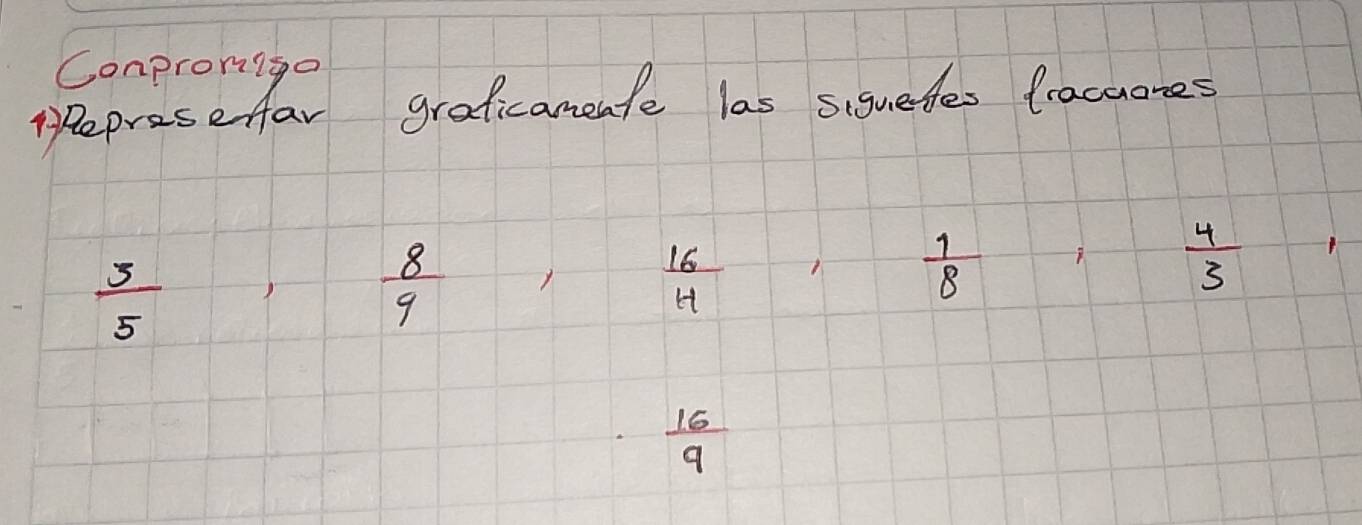 Conpromiso
1) Represerfar graficamente las siguietes fracciones
3/5 , 8/9 , 16/4 , 1/8 , 4/3 ,
. 16/9